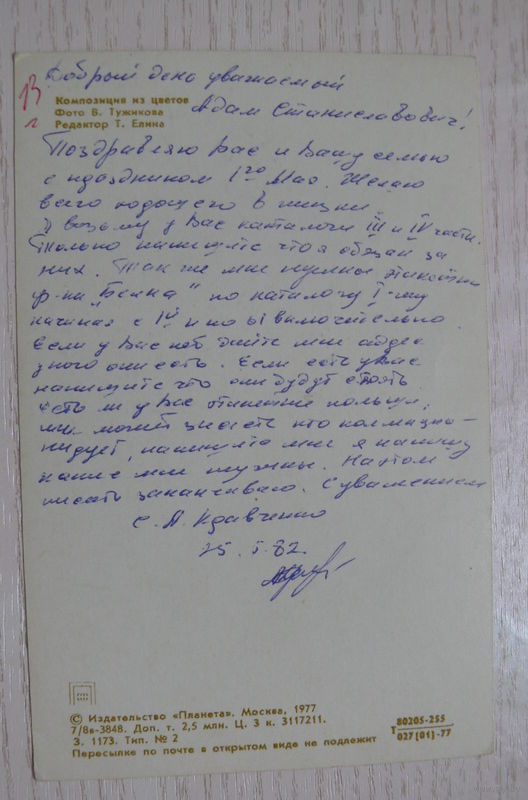 Добрый день уважаемый
Адам Станиславович!
13
г
Композиция из цветов
Фото В. Тужикова
Редактор Т. Елина
Поздравляю Вас и Вашу семью
с праздником 1го Мая. Желаю
всего хорошего в жизни.
Я возьму у Вас каталоги III и IV части.
Только напишите что я обязан за
них. Так же мне нужны этикетки
ф-ки "Белка" по каталогу I-му
начиная с и по включительно.
Если у Вас нет дайте мне адрес
у кого они есть. Если есть у Вас
напишите что они будут стоять.
Есть ли у Вас этикетки польши,
или может знаете кто коллицио-
нидует, напишите мне я напишу
какие мне нужны. На этом
писать заканчиваю. С уважением
с. А. Кравченко
25. 82.
© Издательство «Планета». Москва, 1977
7/8в-3848. Доп. т. 2,5 млн. Ц. 3 к. 3117211.
З. 1173. Тип. № 2
Пересылке по почте в открытом виде не подлежит
Т 80205-255
027(01)-77